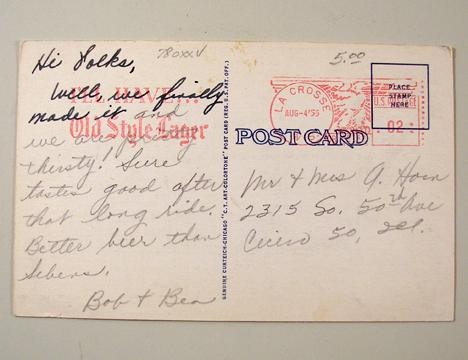 Hi Folks,
Well, we finally
made it and
we are
thirsty! Sure
tastes good after
that long ride.
Better beer than
Sebens.
Bob + Bea
780xxV
I'LL HAVE...
Old Style Lager
GENUINE CURTEICH-CHICAGO "C.T. ART-COLORTONE" POST CARD (REG. U.S. PAT. OFF.)
5.00
LA CROSSE
AUG-4'55
U.S. POSTAGE
.02
PLACE
STAMP
HERE
POST CARD
Mr + Mrs A. Horn
2315 So. 50th Ave
Cicero 50, Ill.